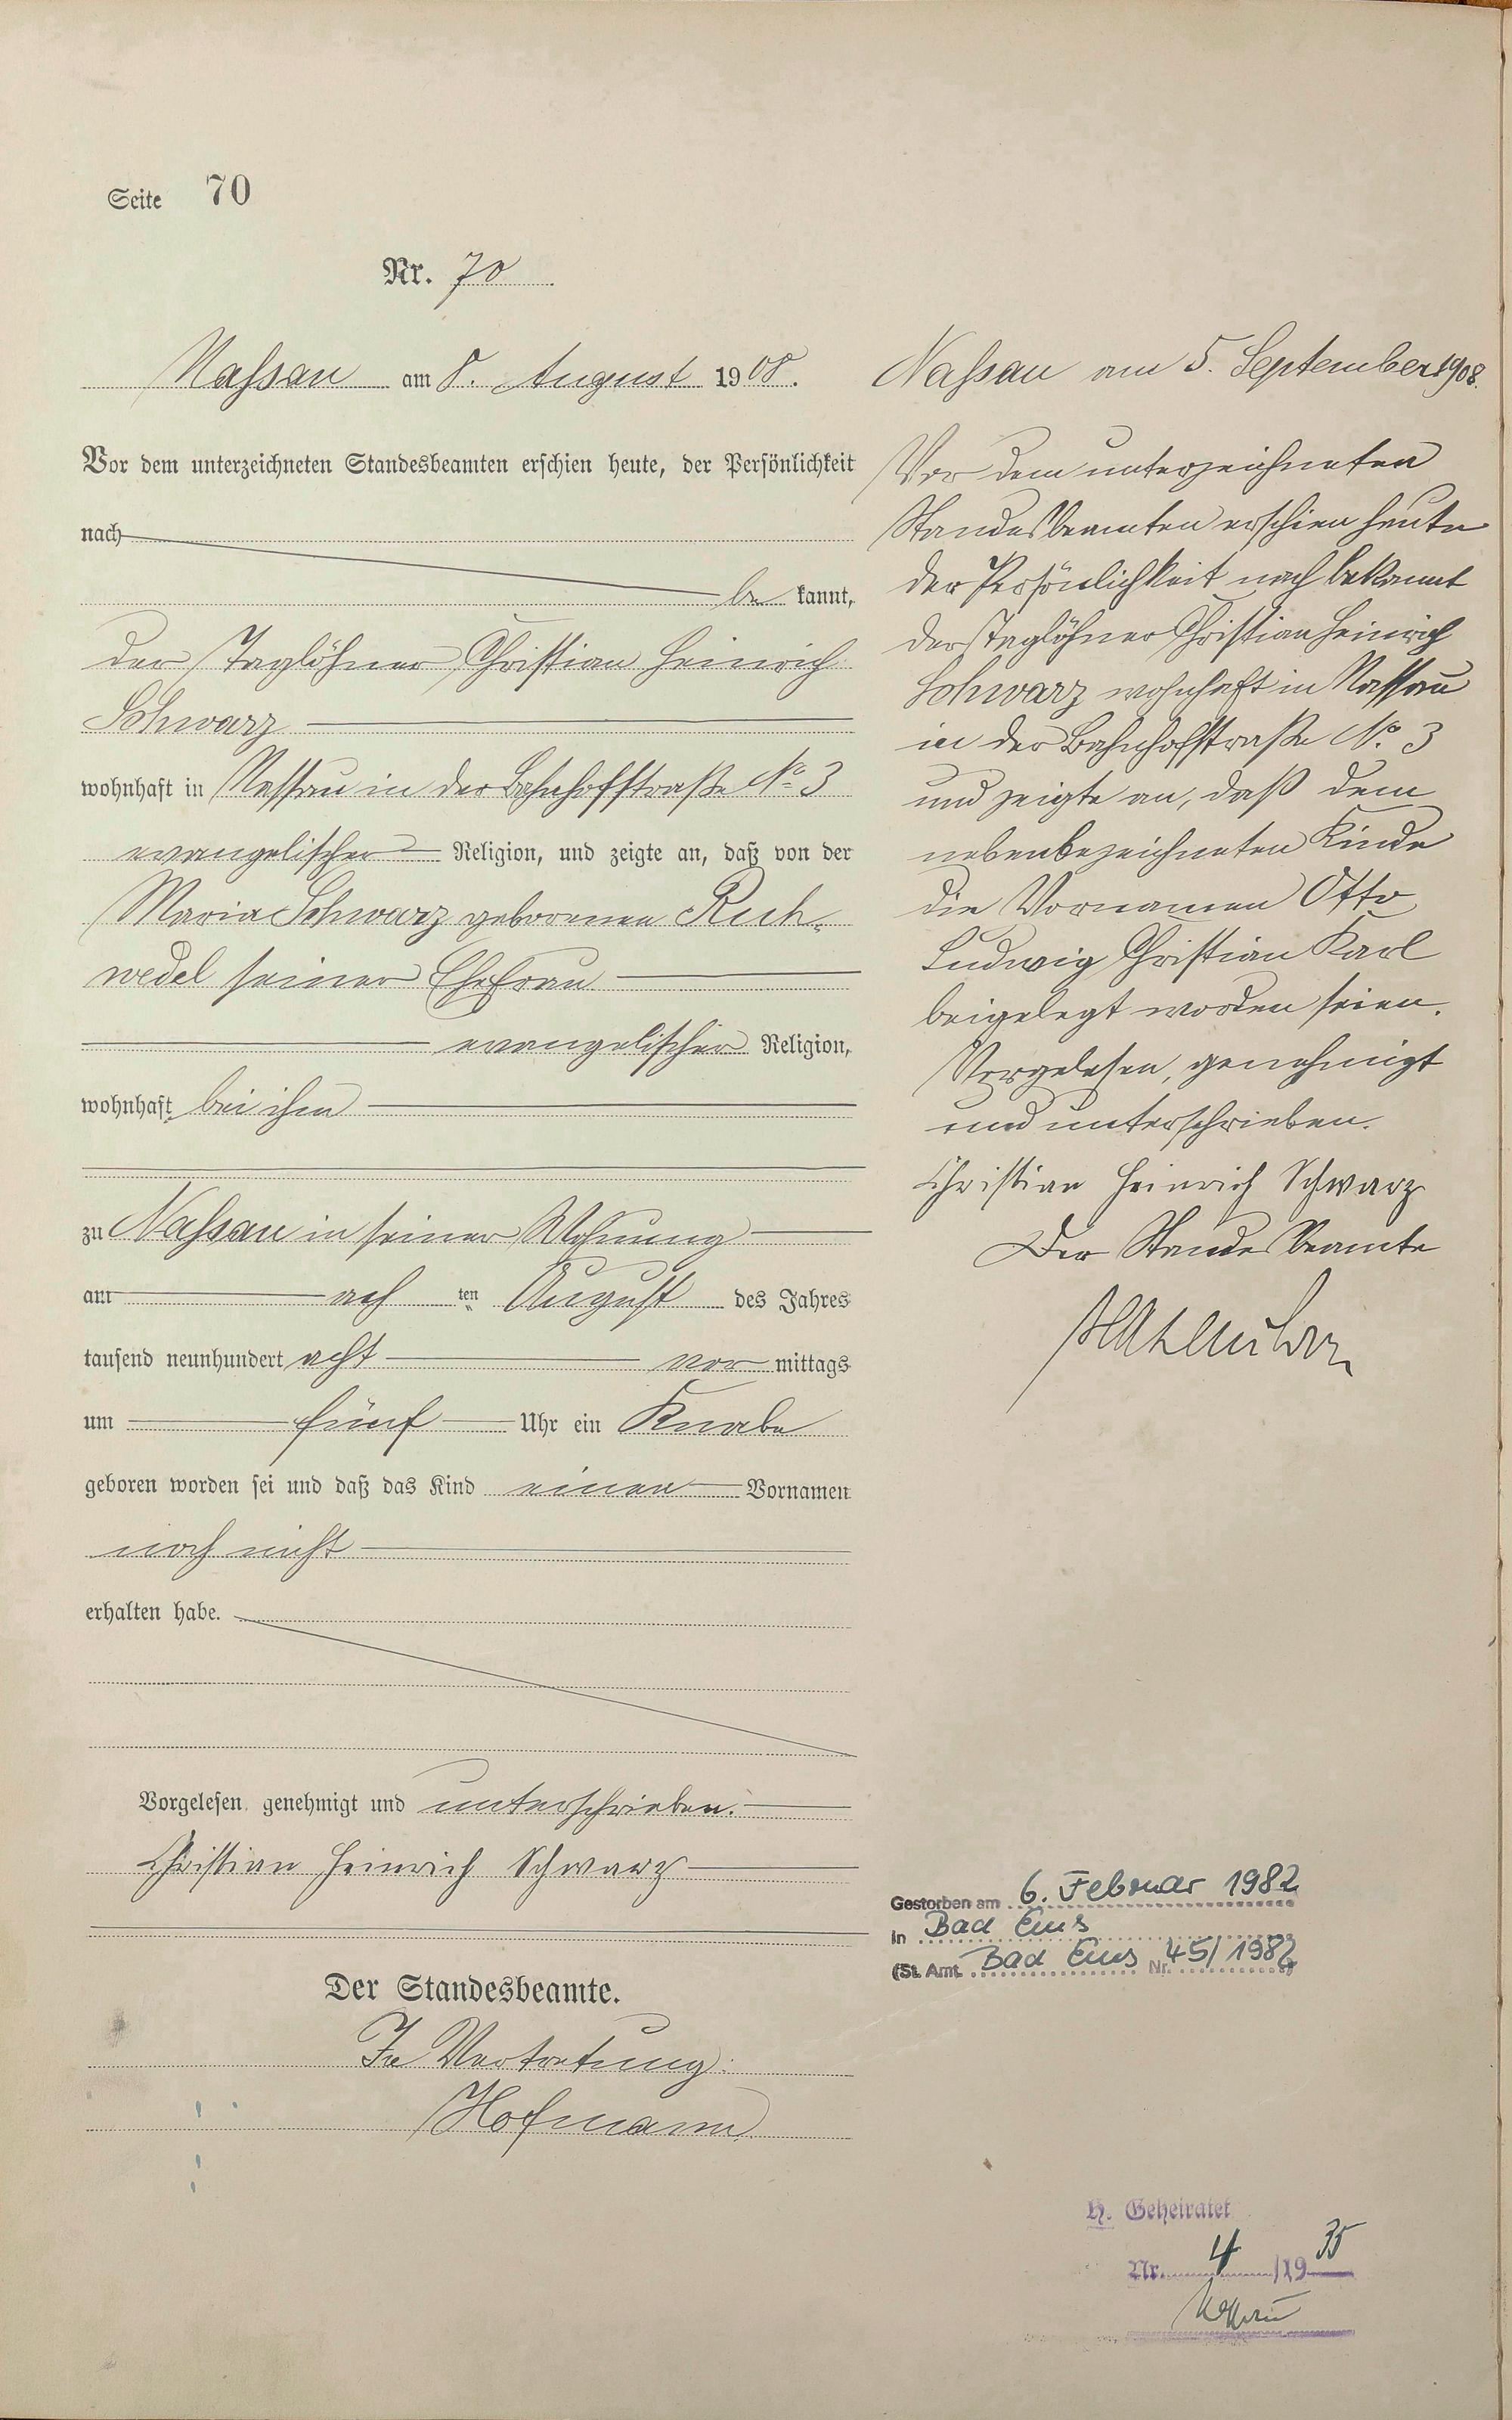 Seite 70
Nr. 70
Naßsau am 8. August 1908.
Vor dem unterzeichneten Standesbeamten erschien heute, der Persönlichkeit
nach
be kannt,
der Taglöhner Christian Heinrich
Schwarz
wohnhaft in Nassau in der Bahnhofstraße No 3
evangelischer Religion, und zeigte an, daß von der
Maria Schwarz geborenen Ruck-
wedel seiner Ehefrau
evangelischer Religion,
wohnhaft bei ihm
zu Naßsau in seiner Wohnung
am ach ten August des Jahres
tausend neunhundert acht vor mittags
um fünf Uhr ein Knabe
geboren worden sei und daß das Kind einen Vornamen
noch nicht
erhalten habe.
Vorgelesen, genehmigt und unterschrieben.
Christian Heinrich Schwarz
Der Standesbeamte.
In Vertretung:
Hofmann
Naßsau am 5. September 1908.
Vor dem unterzeichneten
Standesbeamten erschien heute
der Persönlichkeit nach bekannt
der Taglöhner Christian Heinrich
Schwarz wohnhaft in Nassau
in der Bahnhofstraße No. 3
und zeigte an, daß dem
nebenbezeichneten Kinde
die Vornamen Otto
Ludwig Christian Karl
beigelegt worden seien.
Vorgelesen, genehmigt
und unterschrieben.
Christian Heinrich Schwarz
Der Standesbeamte
Gestorben am 6. Februar 1982
in Bad Ems
(St. Amt. Bad Ems Nr. 45/1982
H. Geheiratet
Nr. 4 /1935
Nassau